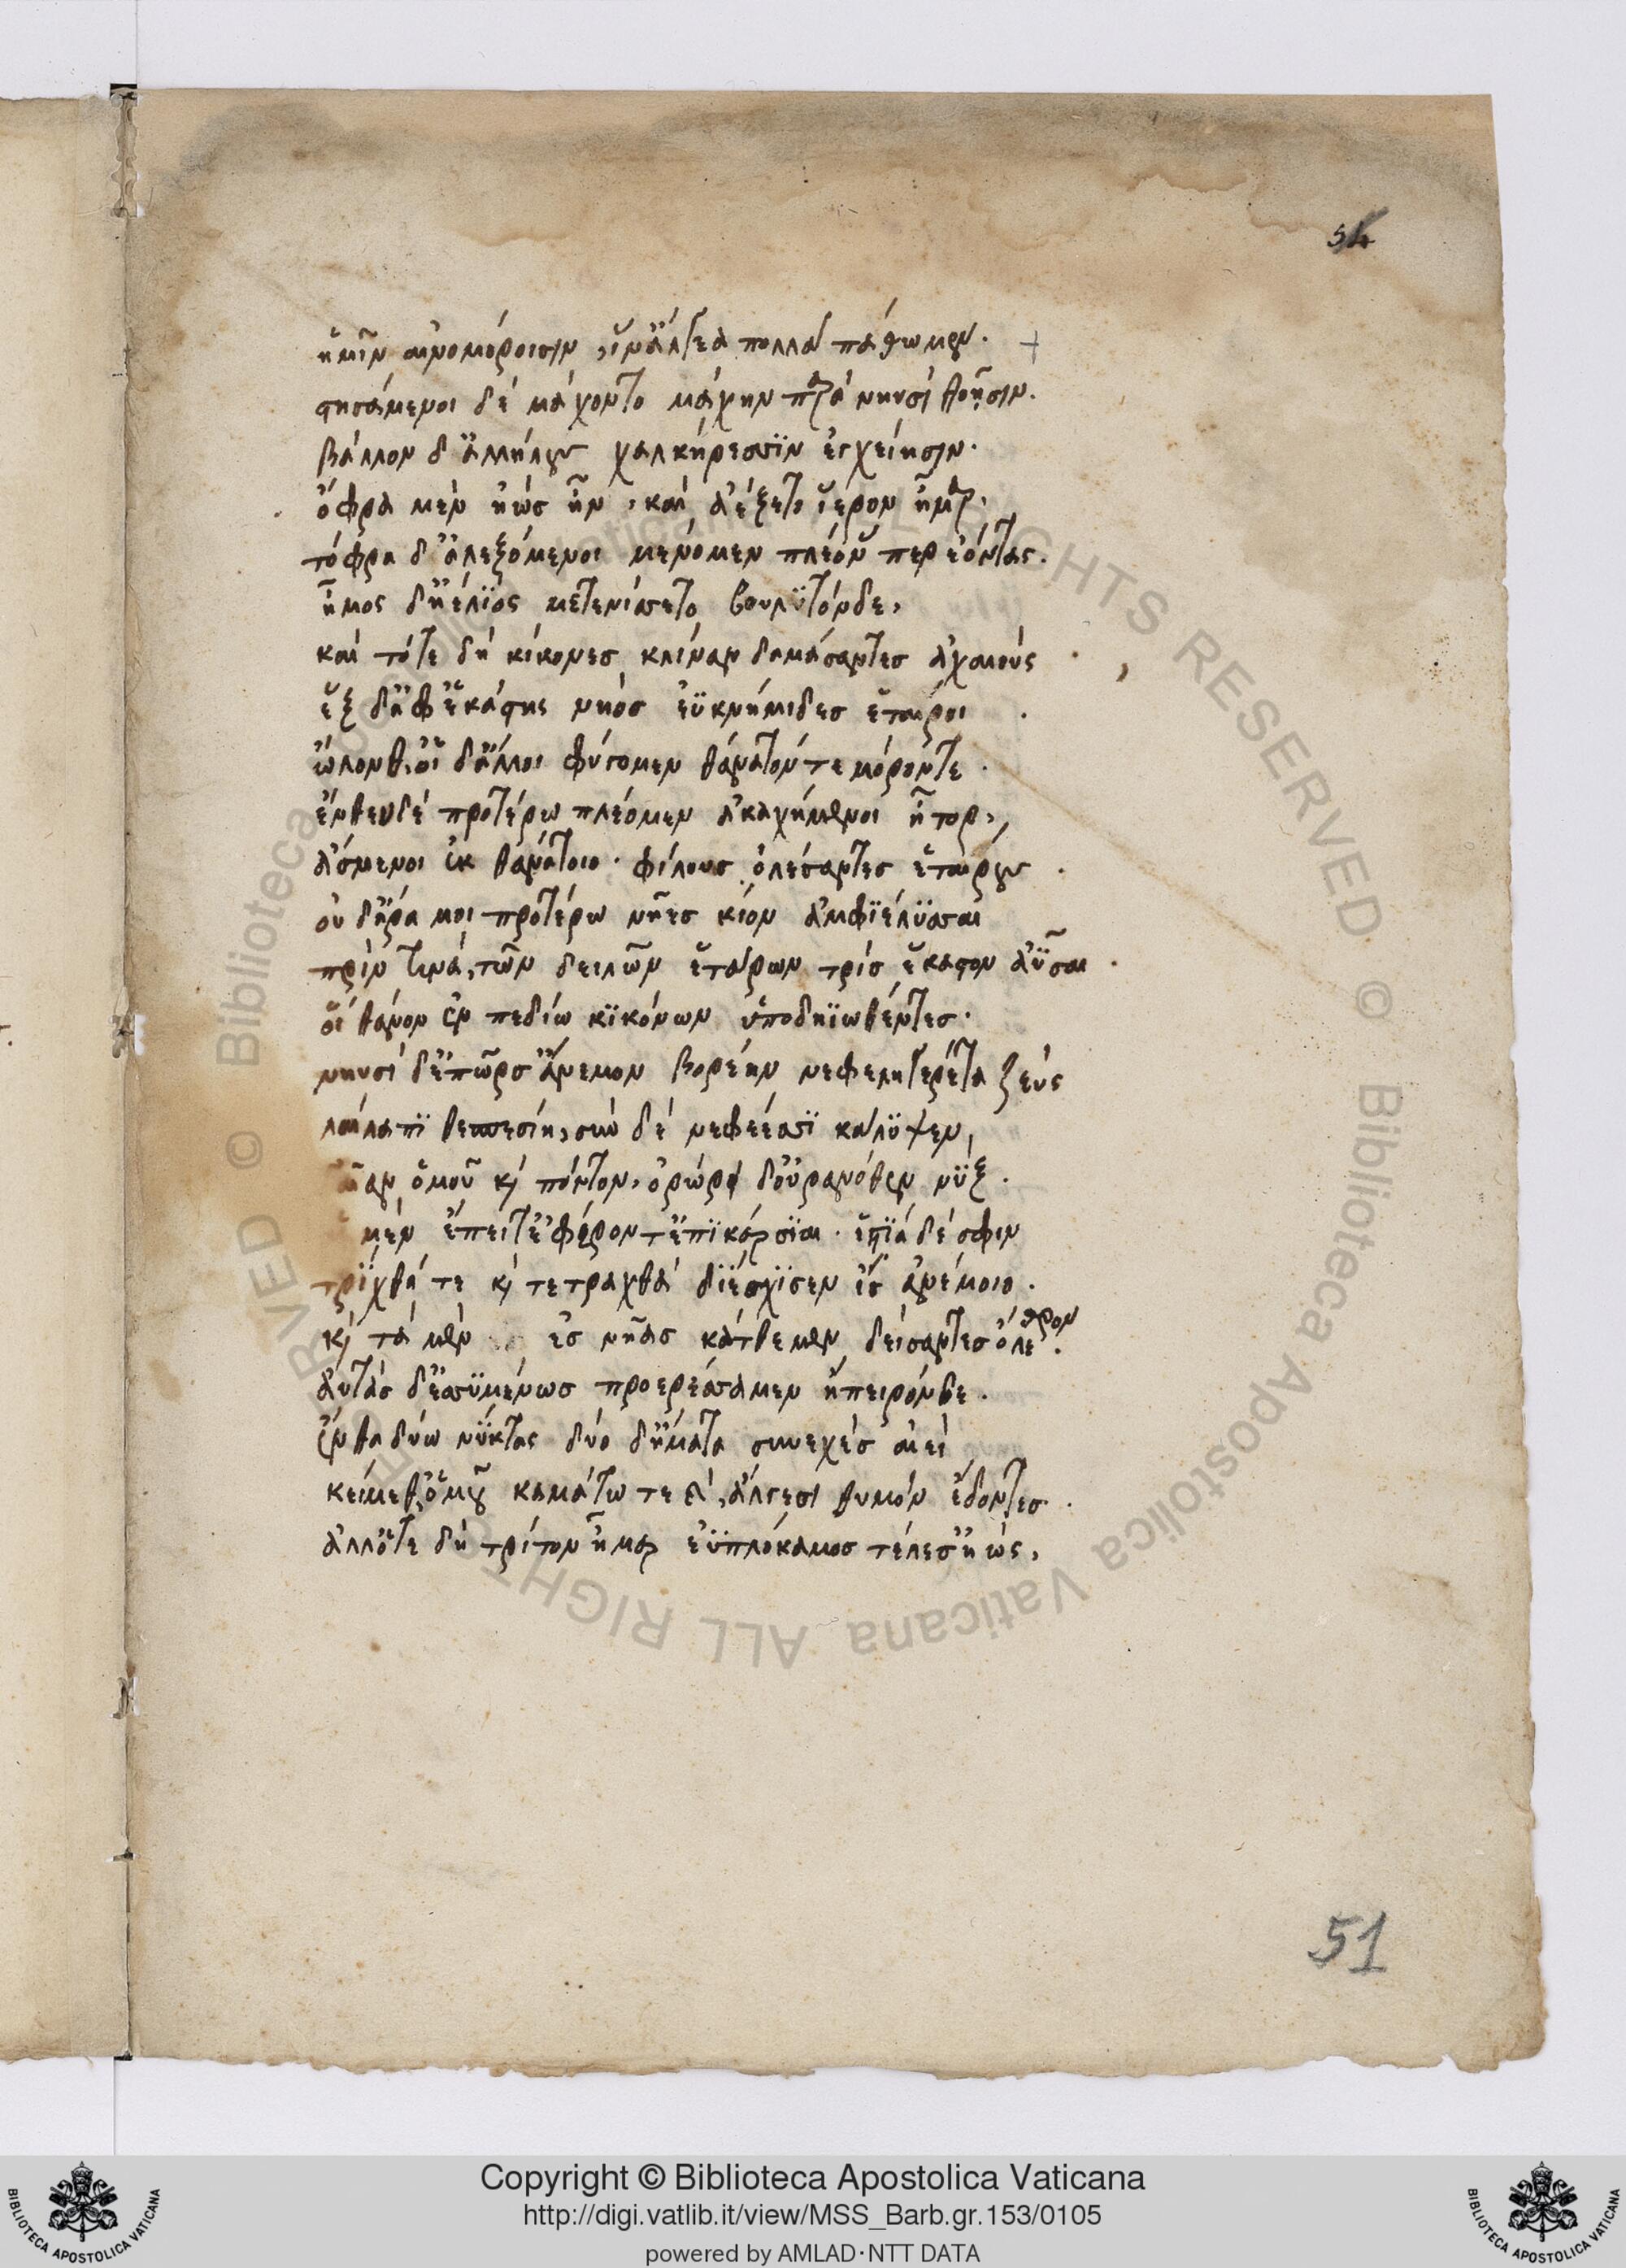 54
ἡμῖν αἰνομόροισιν, ἵν' ἄλγεα πολλὰ πάθωμεν. +
στησάμενοι δὲ μάχοντο μάχην παρὰ νηυσὶ θοῇσιν.
βάλλον δ' ἀλλήλους χαλκήρεσϊν ἐγχείησιν.
ὄφρα μὲν ἠὼς ἦν, καὶ ἀέξετο ἱερὸν ἦμαρ.
τόφρα δ' ἀλεξόμενοι μένομεν πλέον περ ἐόντας.
ἦμος δ' ἠέλϊος μετενίσετο βουλϋτόνδε,
καὶ τότε δὴ κίκονες κλῖναν δαμάσαντες ἀχαιούς.
ἓξ δ' ἀφ' ἑκάστης νηὸς ἐϋκνήμιδες ἑταῖροι.
ὤλονθ' οἱ δ' ἄλλοι φύγομεν θάνατόν τε μόρόν τε.
ἔνθεν δὲ προτέρω πλέομεν ἀκαχήμενοι ἦτορ,
ἄσμενοι ἐκ θανάτοιο. φίλους ὀλέσαντες ἑταίρους.
οὐδ' ἄρα μοι προτέρω νῆες κίον ἀμφϊέλϋσαι
πρίν τινα, τῶν δειλῶν ἑτάρων τρὶς ἕκαστον ἀῧσαι.
οἳ θάνον ἐν πεδίω κϊκόνων ὑποδηϊωθέντες.
νηυσὶ δ' ἐπῶρσ' ἄνεμον βορέην νεφεληγερέτα ζεὺς
λαίλαπϊ θεσπεσίη, σὺν δὲ νεφέεσσϊ καλϋψεν,
γαῖαν ὁμοῦ καὶ πόντον, ὀρώρει δ' οὐρανόθεν νϋξ.
μὲν ἔπειτ' ἐφέροντ' ἐπϊκάρσϊαι. ἱστϊα δέ σφιν
τρϊχθά τε καὶ τετραχθὰ δϊέσχϊσεν ἲς ἀνέμοιο.
καὶ τὰ μὲν ἐς νῆας κάτθεμεν δείσαντες ὄλεθρον.
αὐτὰς δ' ἐσϋμένως προερέσσαμεν ἤπειρόνδε.
ἔνθα δύω νϋκτας δύο δ' ἤματα συνεχὲς αἰεὶ
κείμεθ' ὁμοῦ καμάτω τε καὶ, ἄλγεσι θυμὸν ἔδοντες.
ἀλλ' ὅτε δὴ τρίτον ἦμαρ ἐϋπλόκαμος τέλεσ' ἠώς,
51
Copyright © Biblioteca Apostolica Vaticana
http://digi.vatlib.it/view/MSS_Barb.gr.153/0105
powered by AMLAD·NTT DATA